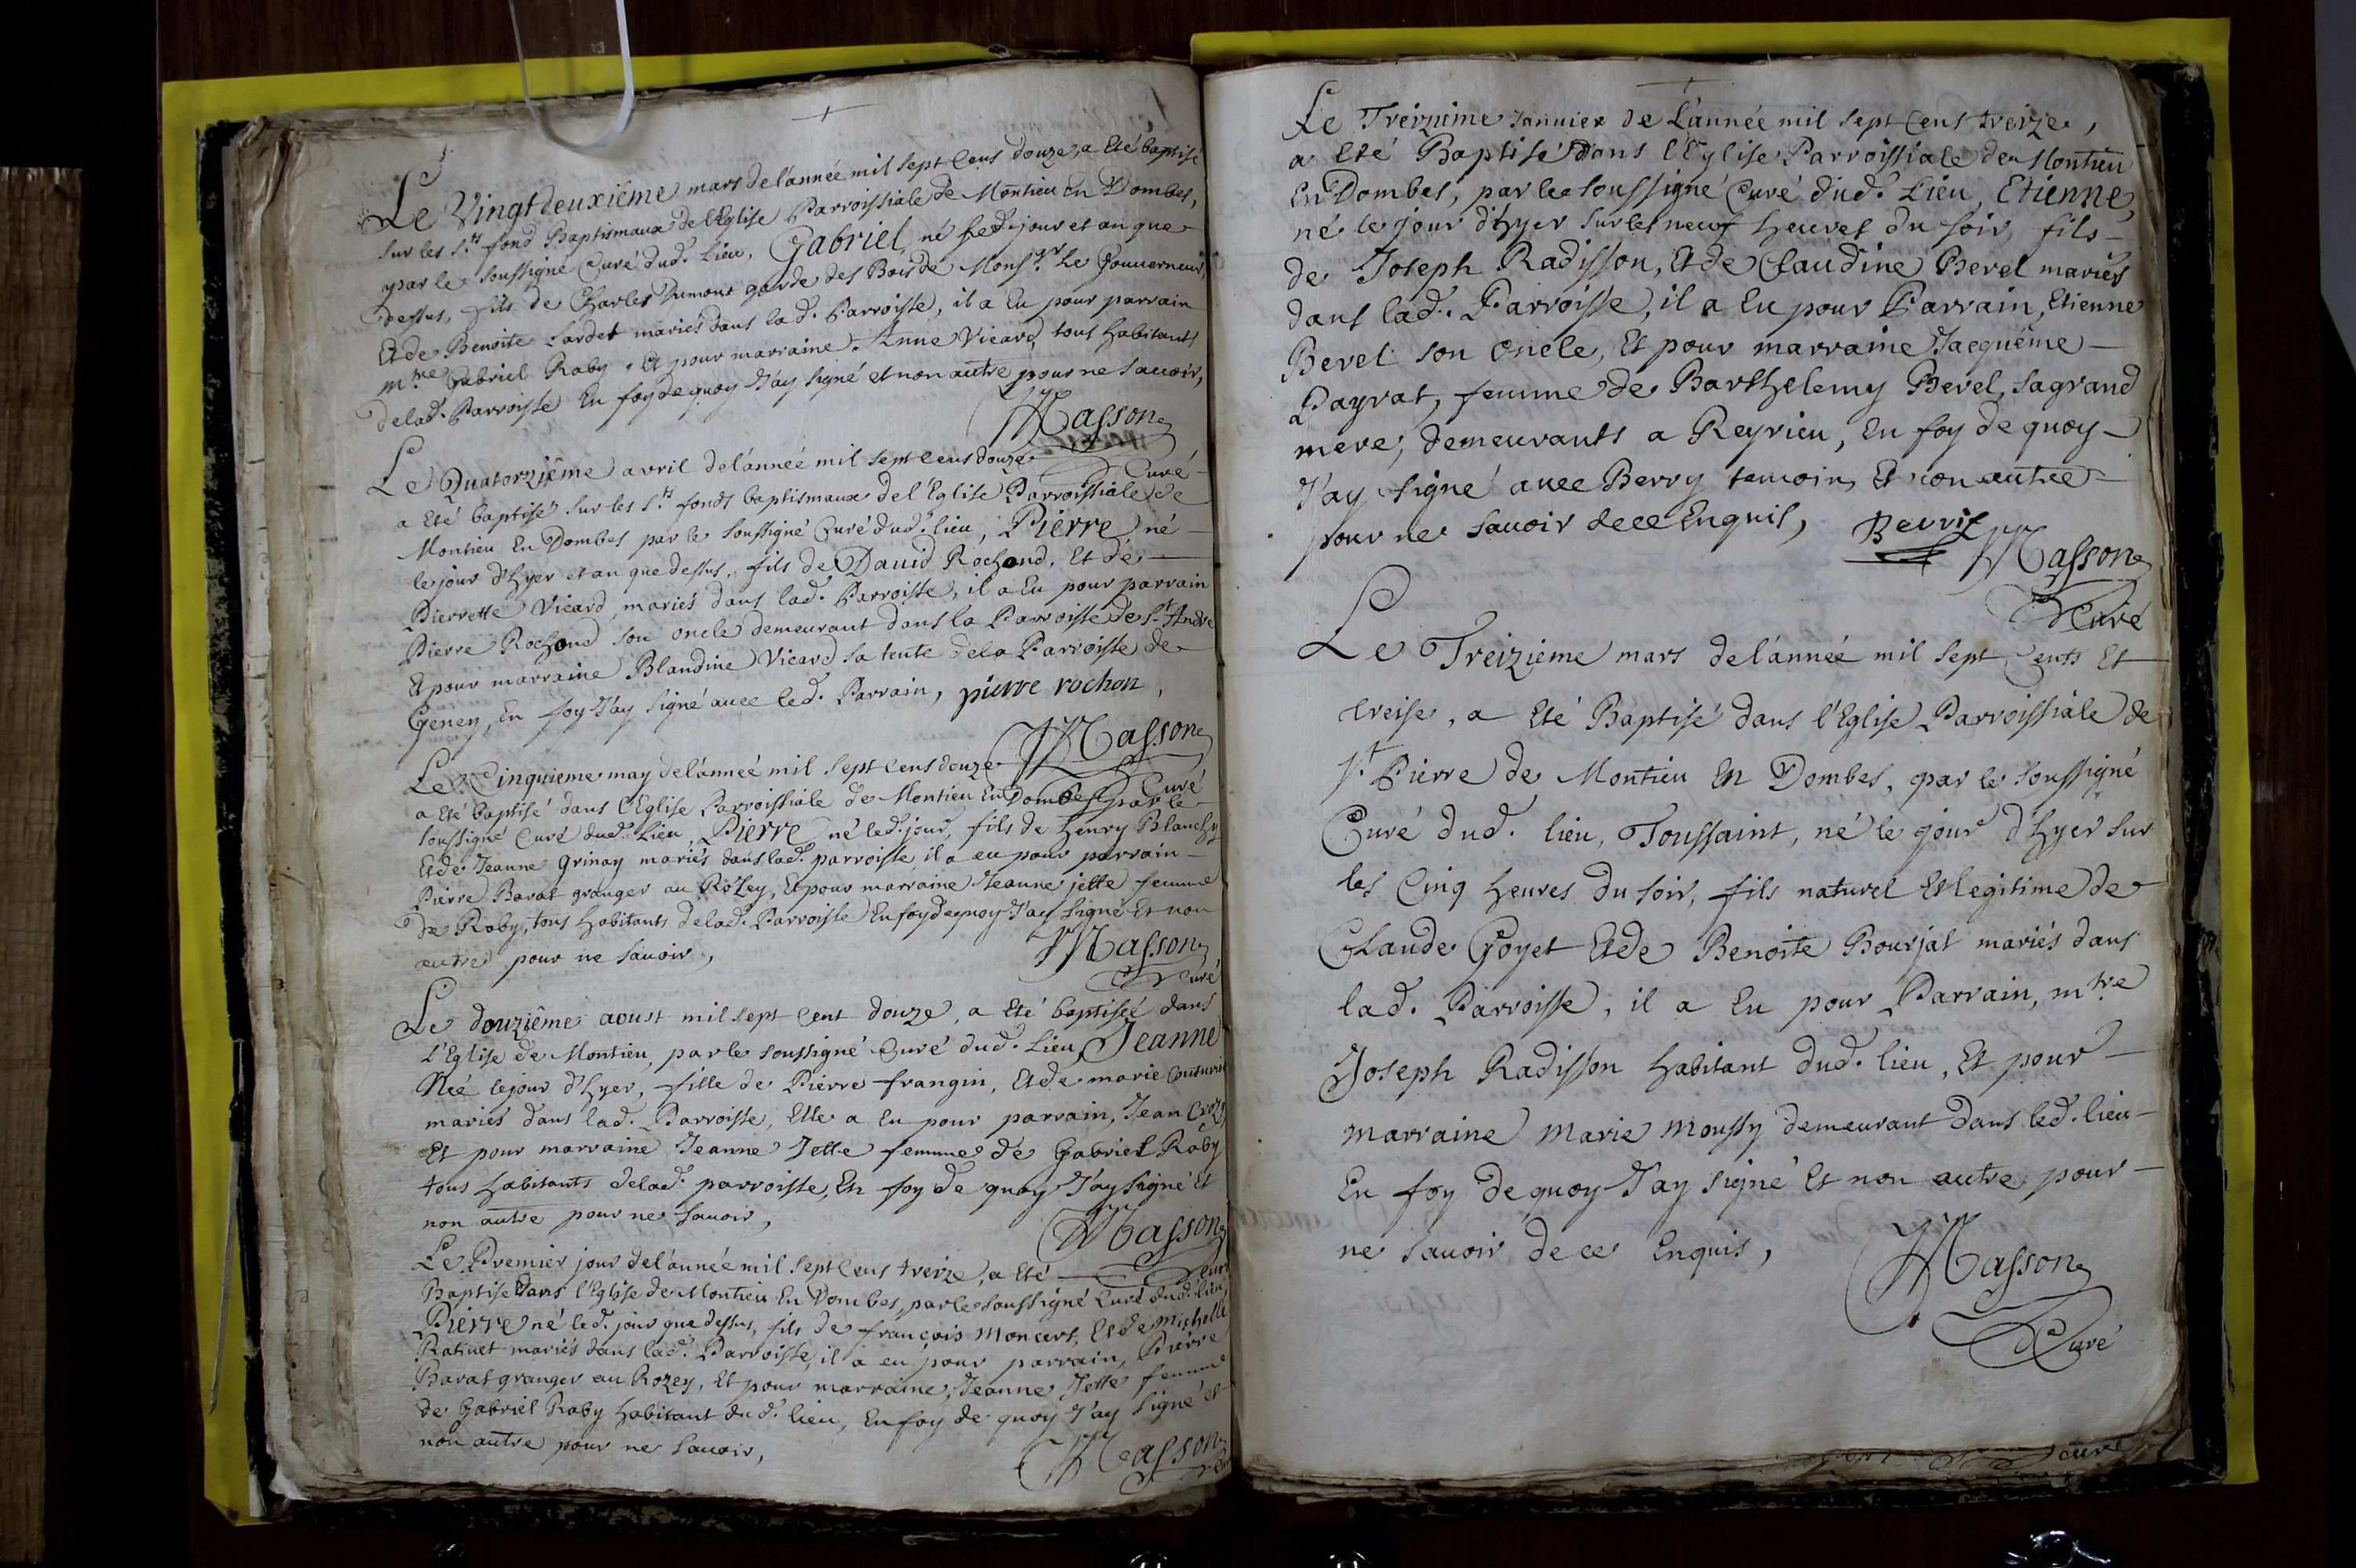 Le Vingtdeuxiême mars de l'année mil sept cens douze, a Eté baptisé
sur les S.ts fond Baptismaux de l'Eglise Parroissiale de Montieu en Dombes,
par le soussigné Curé dud. Lieu, Gabriel, né led. jour et an que
dessus, fils de Charles Dumont garde des Bois de Mons.gr Le Gouverneur,
Et de Benoite Sardet mariés dans lad. Parroisse, il a Eu pour parrain
m.tre Gabriel Raby, Et pour marraine Anne Vicard, tous habitants
de lad. Parroisse En foy de quoy J'ay signé et non autre pour ne savoir,
Masson
Curé
Le Quatorziême avril de l'anneé mil sept cens douze
a Eté baptisé sur les S.ts fonds baptismaux de l'Eglise Parroissiale de
Montieu En Dombes par le soussigné Curé dud. lieu, Pierre né
le jour d'hyer et an que dessus, fils de David Rochond, Et de
Pierrette Vicard, mariés dans lad. Parroisse, il a Eu pour parrain
Pierre Rochond son oncle demeurant dans la Parroisse de S.t André
Et pour marraine Blandine Vicard sa tente de la Parroisse de
Geney, En foy J'ay signé avec led. Parrain, pierre rochon,
Masson
Curé
Le Cinquieme may de l'anneé mil sept cens douze
a Eté baptisé dans l'Eglise Parroissiale de Montieu En Dombes par le
soussigné Curé dud. Lieu, Pierre né led. jour, fils de henry Blanchy
Et de Jeanne Grinay mariés dans lad. parroisse il a eu pour parrain
Pierre Barat granger au Rozey, Et pour marraine Jeanne jette femme
de Raby, tous habitants de lad. Parroisse En foy de quoy J'ay signé Et non
autre pour ne savoir,
Masson
Curé
Le douziême aoust mil sept cent douze, a Eté baptiseé dans
l'Eglise de Montieu, par le soussigné Curé dud. Lieu, Jeanne
Neé le jour d'hyer, fille de Pierre frangin, Et de marie
mariés dans lad. Parroisse, Elle a Eu pour parrain, Jean
Et pour marraine Jeanne Jette femme de Gabriel Raby
tous habitants de lad. parroisse, En foy de quoy J'ay signé Et
non autre pour ne savoir,
Masson
Curé
Le Premier jour de l'année mil sept cens treize, a Eté
Baptisé dans l'Eglise de Montieu En Dombes, par le soussigné Curé dud. lieu,
Pierre né led. jour que dessus, fils de françois Moncert, Et de Michelle
Ratinet mariés dans lad. Parroisse, il a eu pour parrain, Pierre
Barat granger au Rozey, Et pour marraine, Jeanne Jette femme
de Gabriel Raby habitant dud. lieu, En foy de quoy J'ay signé et
non autre pour ne savoir,
Masson
Le Treiziéme Janvier de L'année mil sept cens treize,
a Eté Baptisé dans l'Eglise Parroissiale de Montieu
En Dombes, par le soussigné Curé dud. Lieu, Etienne,
né le jour d'hyer sur les neuf heures du soir, fils
de Joseph Radisson, Et de Claudine Berel mariés
dans lad. Parroisse, il a Eu pour Parrain, Etienne
Berel son oncle, Et pour marraine Jacquéme
Payrat, femme de Barthelemy Berel, sa grand
mere, demeurants a Reyrieu, En foy de quoy
J'ay signé avec Berry temoin, Et non autre
pour ne savoir de ce Enquis,
Masson
Curé
Le Treizième mars de l'année mil sept cents Et
treise, a Eté Baptisé dans l'Eglise Parroissiale de
S.t Pierre de Montieu En Dombes, par le soussigné
Curé dud. lieu, Toussaint, né le jour d'hyer sur
les Cinq heures du soir, fils naturel Et legitime de
Claude Goyet Et de Benoite Bourjat mariés dans
lad. Parroisse, il a Eu pour Parrain, m.tre
Joseph Radisson habitant dud. lieu, Et pour
marraine marie moussy demeurant dans led. lieu
En foy de quoy J'ay signé Et non autre pour
ne savoir de ce Enquis,
Masson
Curé